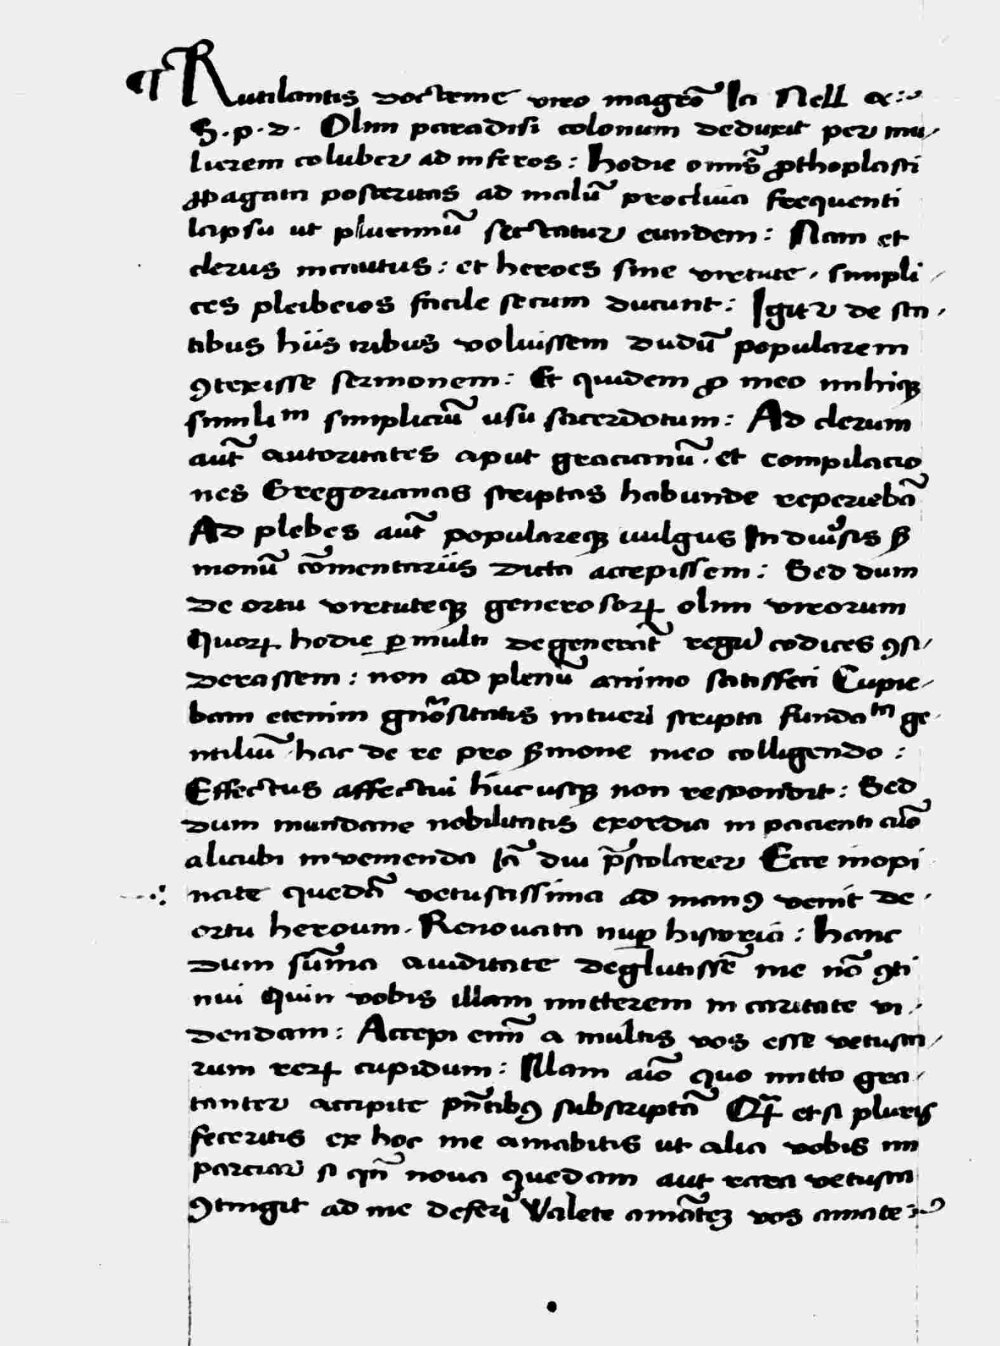 ¶ Rutilantis doctrine viro magrō Ja Nell &c:~
S. p. d. Olim paradisi colonum deduxit per mu-
lierem coluber ad inferos: hodie omīs ꝓthoplasti
ꝓpagata posteritas ad malū proclivia frequenti
lapsu ut plurimū sectatur eundem: Nam et
clerus incautus: et heroes sine virtute, simpli-
ces pleibeios facile secum ducunt: Igitur de sta-
tibus hiis tribus voluissem dudū popularem
ꝯtexisse sermonem: Et quidem ꝓ meo mihiqꝫ
similiᵐ simpliciū usu sacerdotum: Ad clerum
aūt autoritates aput gracianū. et compilacio
nes Gregorianas scriptas habunde reperiebā
Ad plebes aūt populareqꝫ vulgus In diuͥsis ẜ
monū cōmentariis dicta accepissem: Sed dum
de ortu virtuteqꝫ generosorꝝ olim virorum
Quorꝝ hodie ꝑmulti degenerāt regū codices ꝯsi-
derassem: non ad plenū animo satisfeci Cupie-
bam etenim gnōsitatis intueri scripta fundaᵗᵃ ge-
ntiliū hac de re pro ẜmone meo colligendo:
Effectus affectui hucusqꝫ non respondit: Sed
dum mundane nobilitatis exordia in pacienti aīo
alicubi invenienda Jā diu p̄stolarer Ecce inopi
nate quedā vetustissima ad manꝰ venit de
ortu heroum. Renovata nuꝑ historia: hanc
dum sūma aviditate deglutissē me nō ꝯti
nui Quin vobis illam mitterem in caritate vi-
dendam: Accepi enī a multis vos esse vetusta-
rum rerꝝ cupidum: Illam aīo quo mitto gra-
tanter accipite pn̄tibꝰ subscriptā Qꝫ et si pluris
feceritis ex hoc me amabitis ut alia vobis im
parciar si qn̄ nova quedam aut rara vetusta
ꝯtingit ad me deferri Valete amātēꝫ vos amate:~